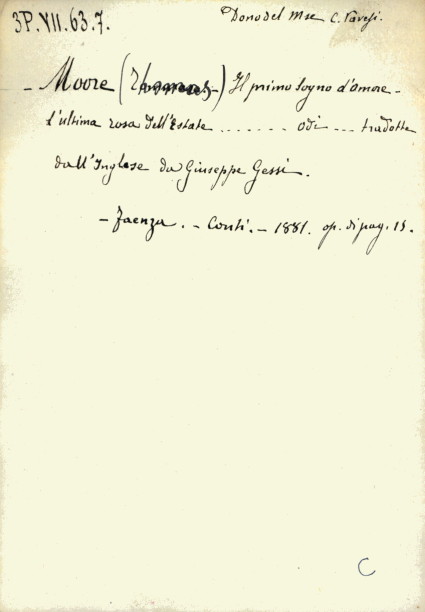 3P. VII. 63. 7.
Dono del Mse C. Pavesi.
- Moore (Thomas) Il primo sogno d'amore -
L'ultima rosa dell'Estate ....... odi ... tradotte
dall'Inglese da Giuseppe Gessi.
- Faenza. - Conti. - 1881. op. di pag. 15.
C